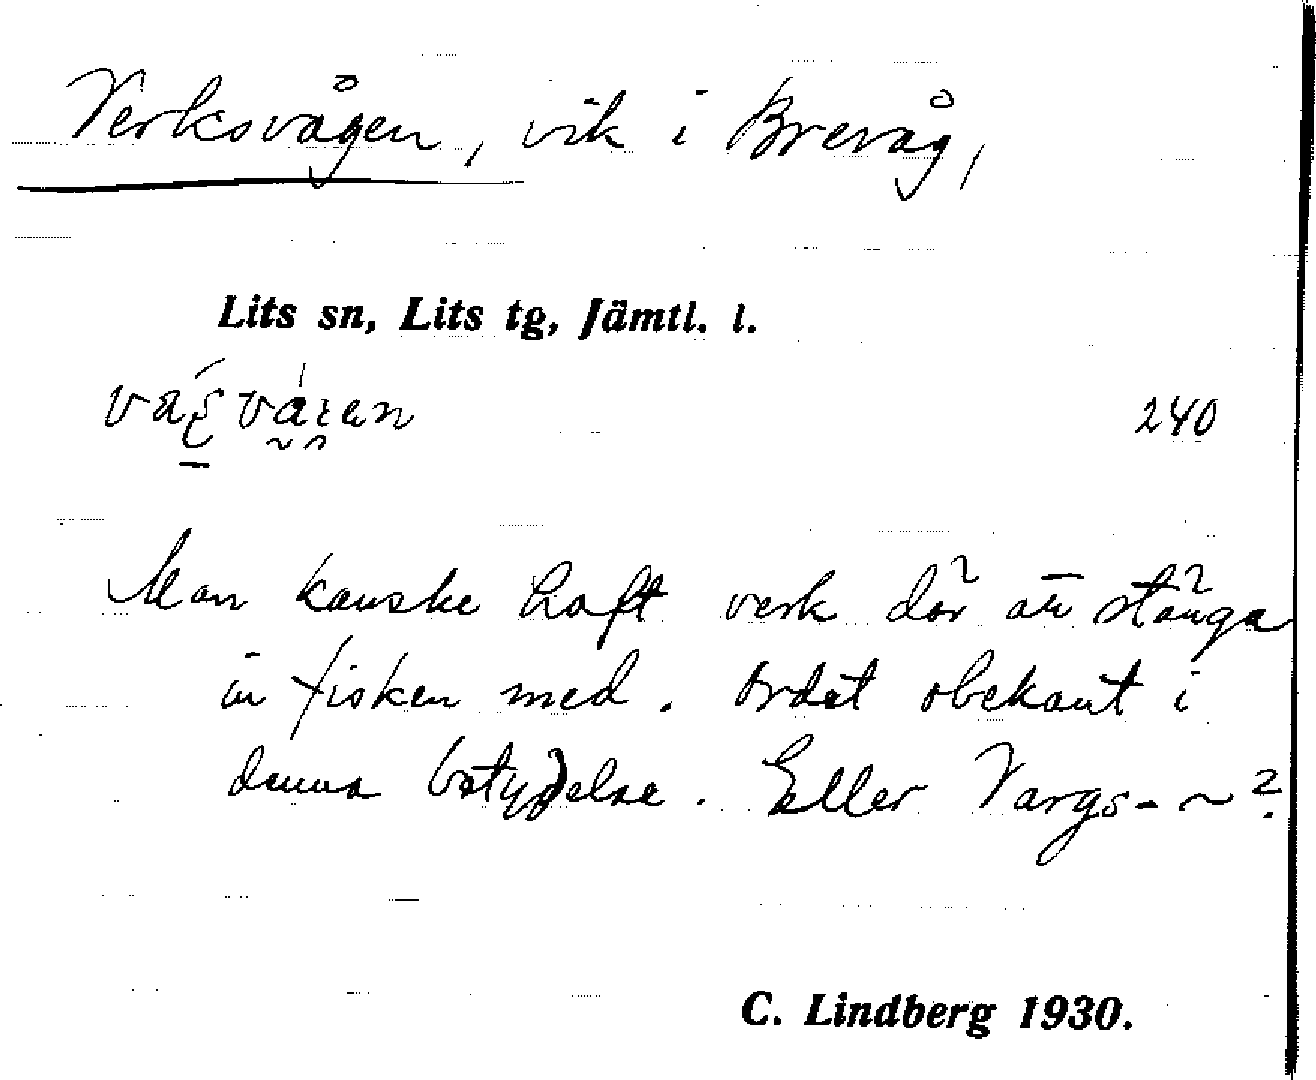 Verksvågen, vik i Brevåg,
Lits sn, Lits tg, Jämtl. l.
240
Man kanske haft verk där att stänga
in fisken med. Ordet obekant i
denna betydelse. Eller Vargs- ~?
C. Lindberg 1930.